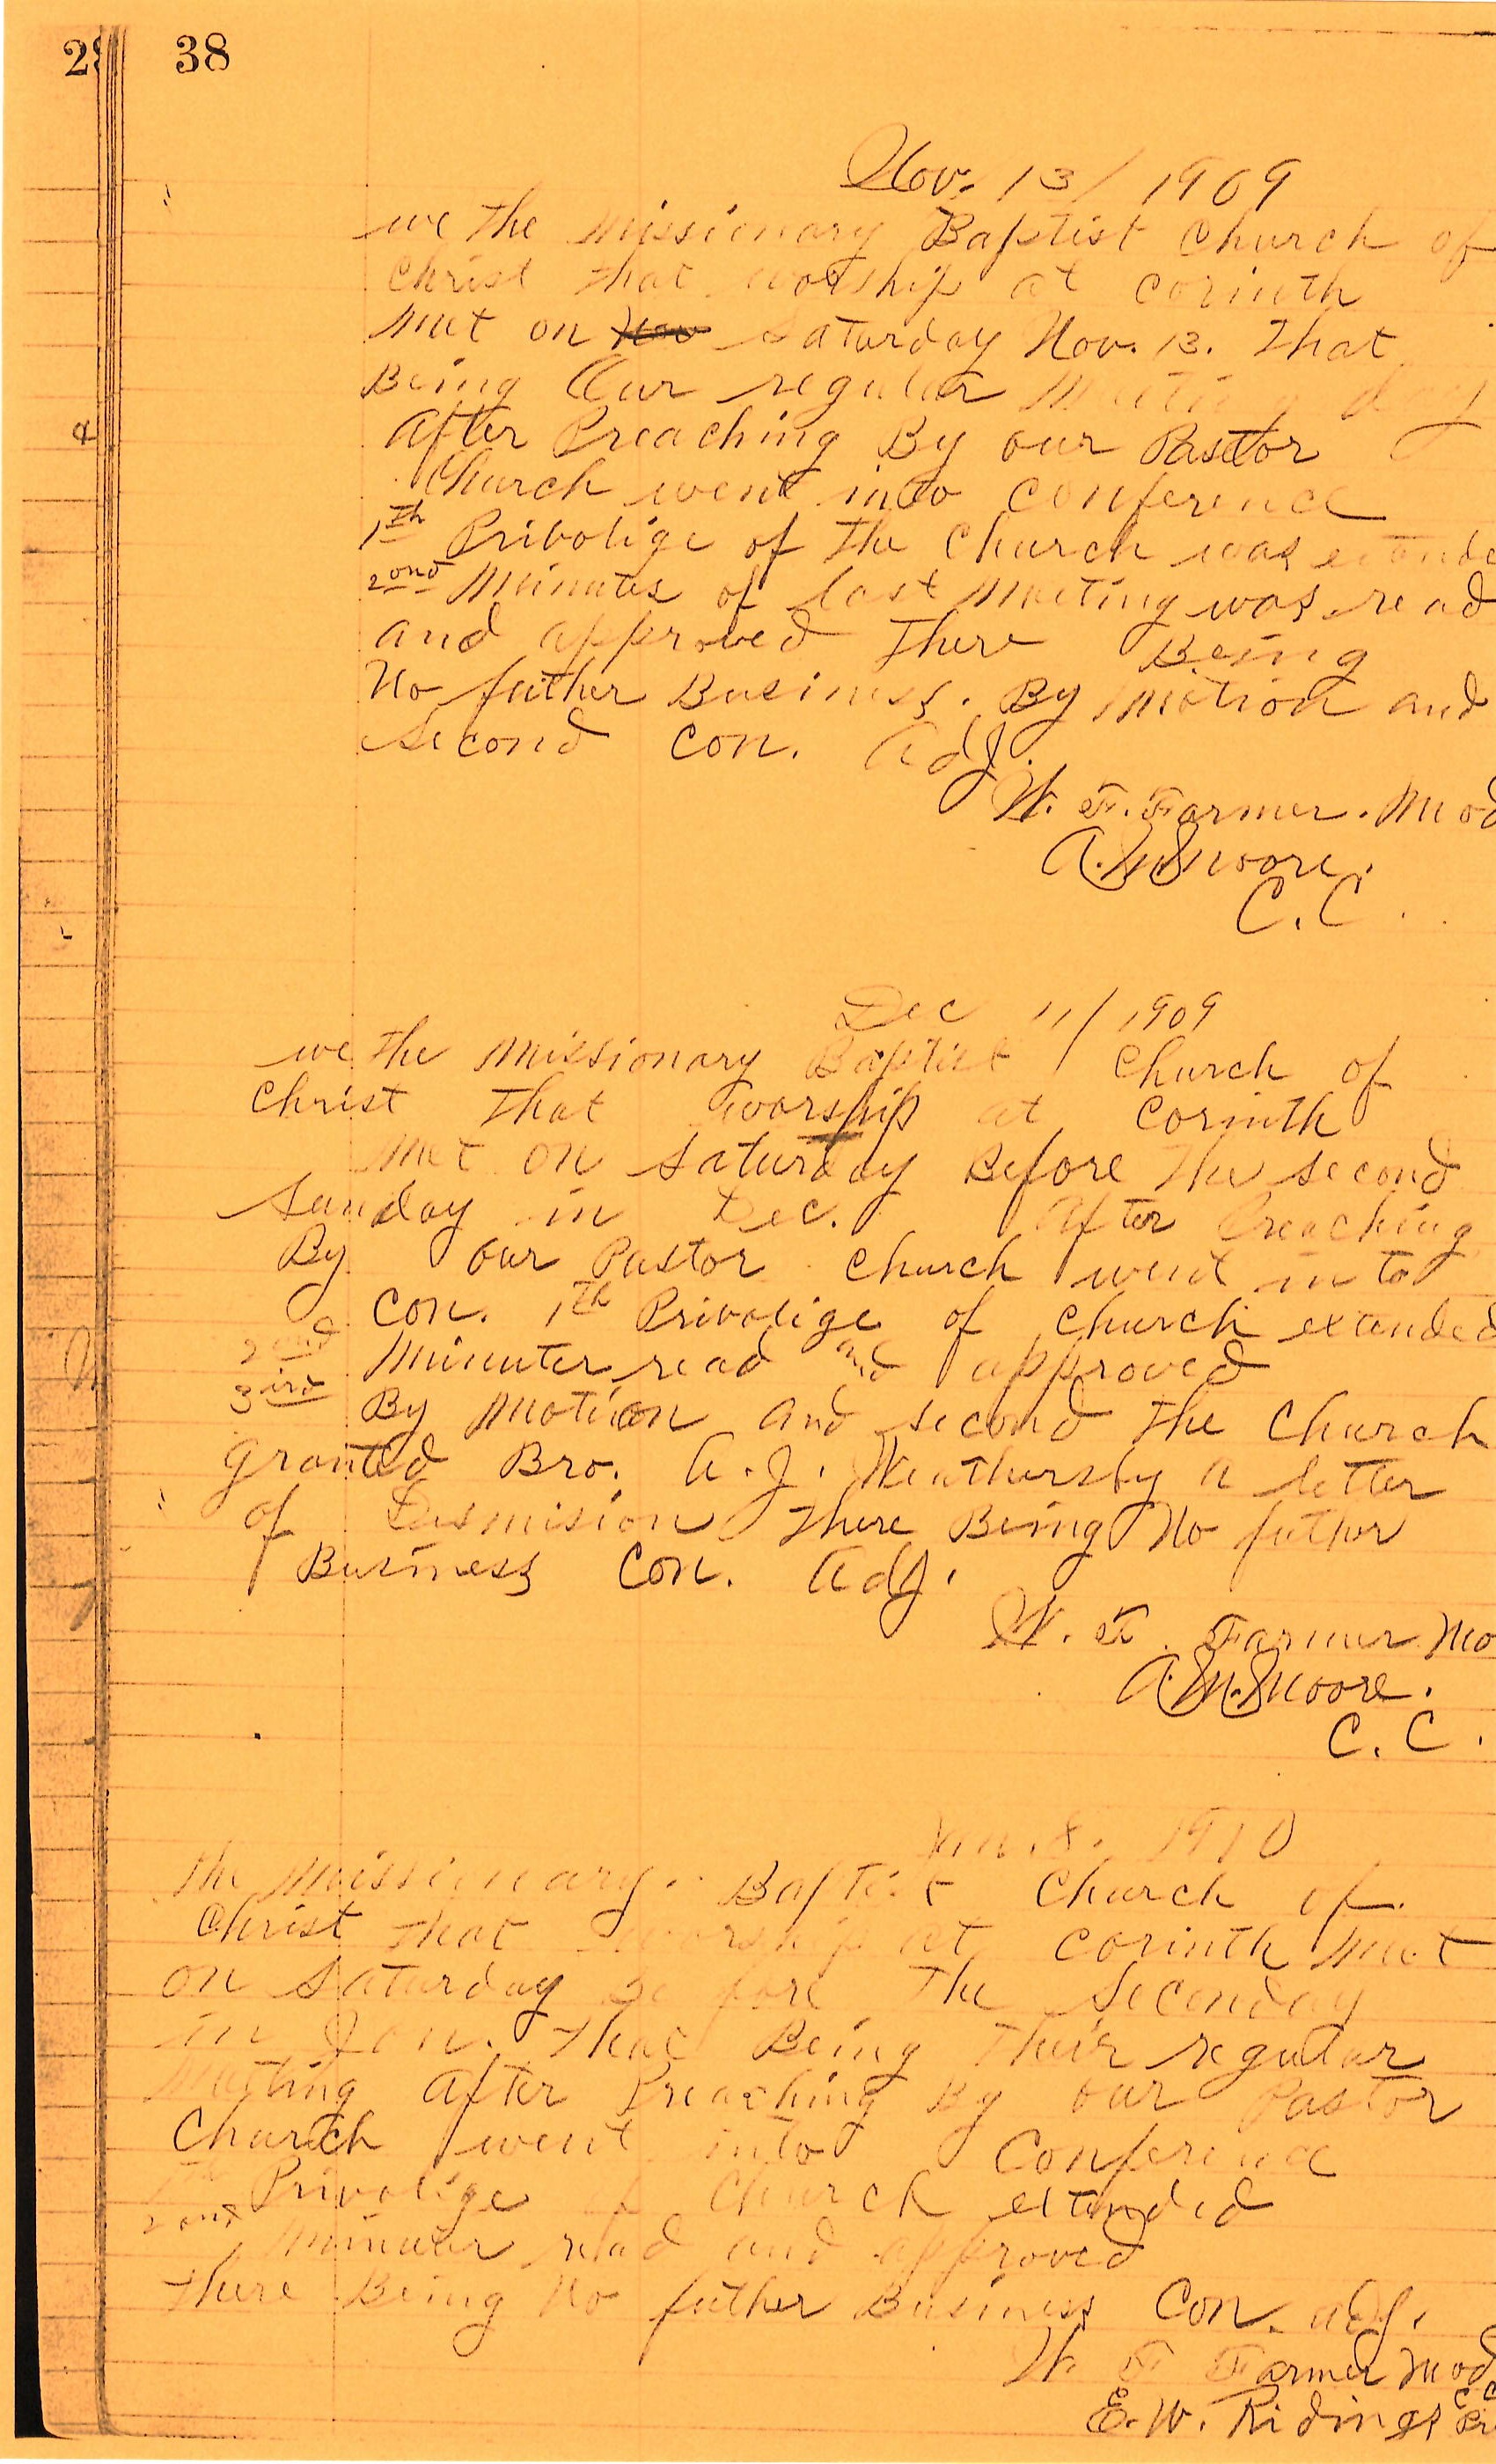 28 38
Nov. 13/1909
we the Missionary Baptist Church of
Christ that worship at Corinth
Met on Nov Saturday Nov. 13. That
Being Our regular Meeting day
After Preaching By our Pastor
Church went into Conference
1th Privolige of the Church was extende
2ond Minutes of last Meeting was read
and approved There Being
No futher Business. By Motion and
Second Con. Adj.
W. F. Farmer. Mod
A. M. Moore.
C. C.
Dec 11/1909
we the Missionary Baptist Church of
Christ That worship at Corinth
Met on Saturday Before The Second
Sunday in Dec. After Preaching
By our Pastor Church went in to
Con. 1th Privolige of Church extended
2ond Minuter read and approved
3ird By Motion and second the Church
Granted Bro. A. J. Weathersby a letter
of Dismision There Being No futher
Business Con. Adj.
W. F. Farmer Mo
A. M. Moore.
C. C.
Jan. 8. 1910
The Missionary Baptist Church of
Christ that worship at Corinth Met
on Saturday Before The Seconday
in Jan. That Being Their regular
Meeting After Preaching By our Pastor
Church went into Conference
1th Privolige of Church extended
2ond Minuter read and approved
There Being No futher Business Con. adj.
W. F. Farmer Mod
E. W. Ridings